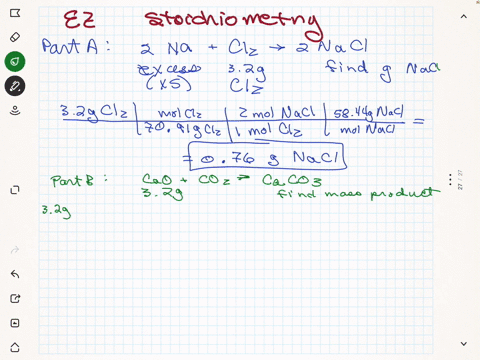 EZ Stoichiometry
Part A: 2 Na + Cl2 → 2 NaCl
excess 3.2g find g NaCl
(XS) Cl2
3.2g Cl2 | mol Cl2 | 2 mol NaCl | 58.44g NaCl =
70.91g Cl2 | 1 mol Cl2 | mol NaCl
= 0.76 g NaCl
Part B: CaO + CO2 → CaCO3
3.2g find mass product
3.2g
27 / 27